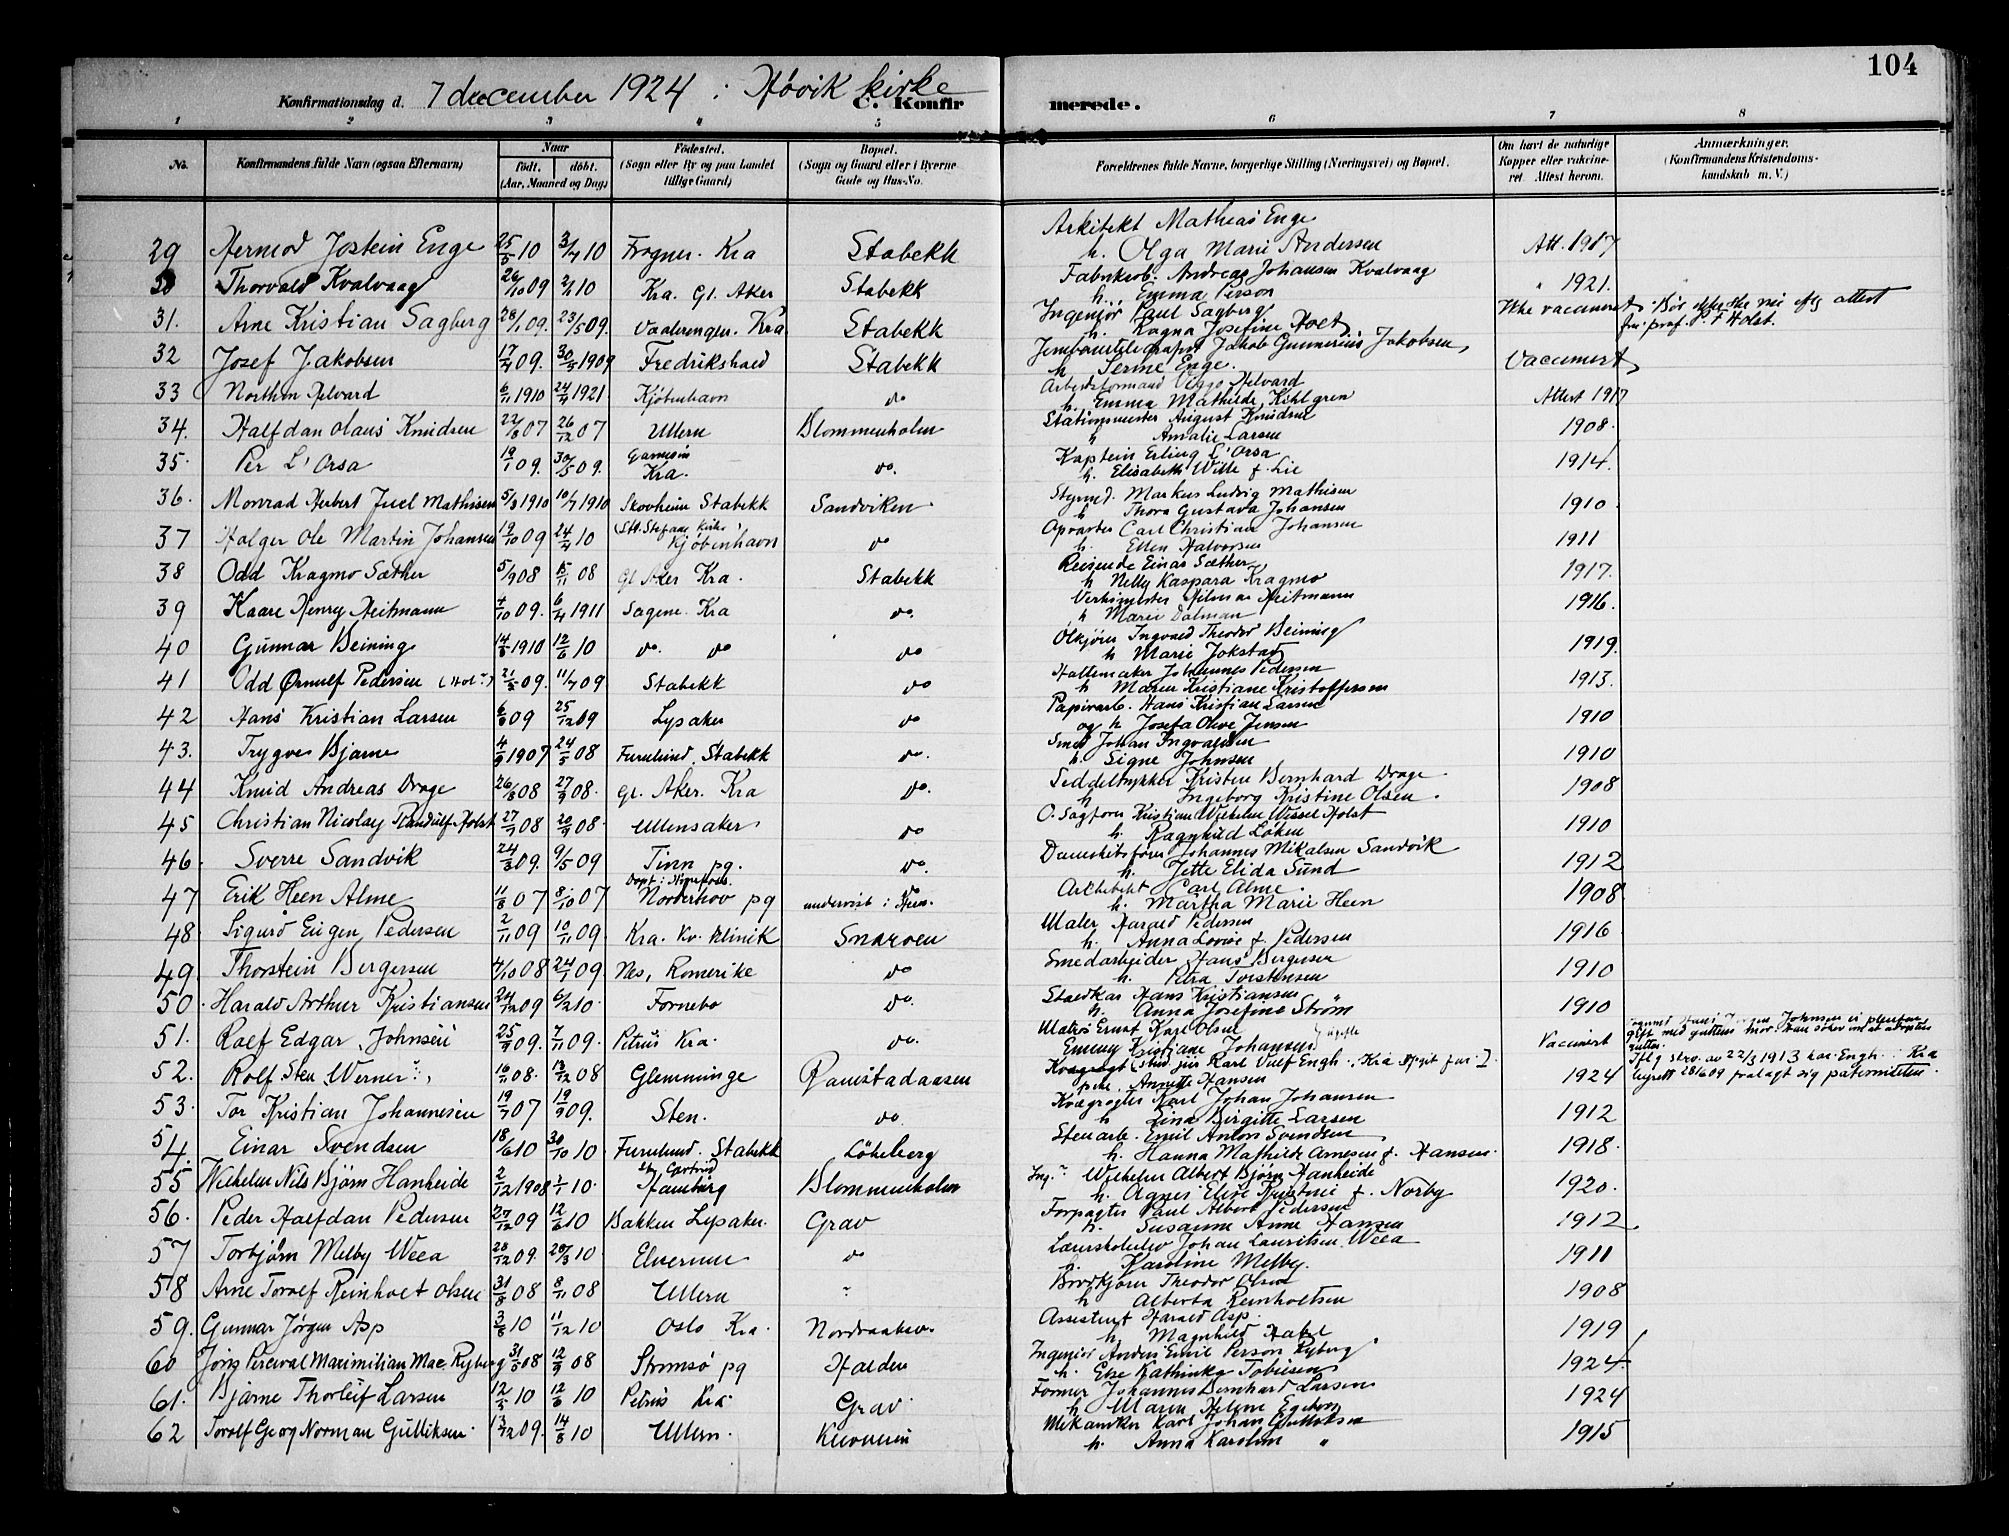 104
Konfirmationsdag d. 7 december 1924 i Høvik kirke
C. Konfirmerede.
1 2 3 4 5 6 7 8
No. Konfirmandens fulde Navn (ogsaa Efternavn) Naar født. døbt. (Aar, Maaned og Dag) Fødested. (Sogn eller By og paa Landet tillige Gaard) Bopæl. (Sogn og Gaard eller i Byerne Gade og Hus-No. Forældrenes fulde Navne, borgerlige Stilling (Næringsvei) og Bopæl. Om havt de naturlige Kopper eller vakcineret Attest herom. Anmærkninger. (Konfirmandens Kristendomskundskab m. V.)
Arkitekt Mathias Enge
29 Hermod Jostein Enge 25/5 10 3/7 10 Frogner. Kra Stabekk h. Olga Marie Andersen Att. 1917
30 Thorvald Kvalvaag 26/10 09 2/1 10 Kra. Gl. Aker Stabekk Fabrikarb. Andreas Johansen Kvalvaag " 1921.
h. Emma Person
31. Arne Kristian Sagberg 28/1 09. 23/5 09. Vaalerengen. Kra Stabekk Ingeniør Paul Sagberg Ikke vaccineret
h. Ragna Josefine Holt fra prof. P. F Holst.
32 Josef Jakobsen 17/4 09. 30/5 1909 Fredrikshald Stabekk Jernbanetelegrafist Jakob Gunnerius Jakobsen Vaccinert
h Serine Enge.
33 Northon Helvard 6/11 1910 24/4 1921 Kjøbenhavn do Arbeidsformand Viggo Helvard Attest 1917
h. Emma Mathilde Kihlgren
34. Halfdan Olaus Knudsen 22/8 07 26/12 07 Ullern Blommenholm Stationsmester August Knudsen 1908.
h Amalie Larsen
35. Per L'Orsa 19/1 09. 30/5 09. Garnisons Kra. do. Kaptein Erling L'Orsa 1914.
h. Elisabeth Wille f. Lie
36. Monrad Herbert Juel Mathisen 5/3 1910 10/7 1910 Skovheim Stabekk Sandviken Styrmd. Markus Ludvig Mathisen 1910
h Thora Gustava Johansen
37 Holger Ole Martin Johansen 19/10 09 24/4 10 (Skt. Stefans kirke) Kjøbenhavn do Opvarter Carl Christian Johansen 1911
h. Ellen Halvorsen
38 Odd Kragmo Sæther 5/9 08 15/11 08 Gl Aker Kra. Stabekk Reisende Einar Sæther 1917.
h Nelly Kaspara Kragmo
39 Kaare Henry Heitmann 4/10 09. 6/4 1911 Sagene. Kra do. Verksmester Hilmar Heitmann 1916.
h Marie Dalman
40 Gunnar Beining 14/3 1910 12/6 10 do. do do Ølkjører Ingvald Theodor Beining 1919.
h Marie Jokstad
41 Odd Ørnulf Pedersen 21/3 09. 11/7 09 Stabekk do Hattemaker Johannes Pedersen 1913.
h Maren Kristiane Kristoffersen
42 Hans Kristian Larsen 6/9 09 25/12 09 Lysaker do Papirarb. Hans Kristian Larsen 1910
og h Josefa Olive Jensen
43. Trygve Bjarne 4/9 1907 24/5 08 Furulund. Stabekk do. Smed Johan Ingvaldsen 1910
h. Signe Johnsen
44 Knud Andreas Drage 26/8 08 27/9 08. Gl. Aker. Kra do. Seddeltrykker Kristen Bernhard Drage 1908
h Ingeborg Kristine Olsen.
45 Christian Nicolay Randulf Holst 27/7 08 20/9 08. Ullensaker do O. Sagfører Kristian Wilhelm Wessel Holst 1910
h. Ragnhild Løken
46. Sverre Sandvik 24/3 09. 9/5 09 Tinn pg. do. Dampskibsfører Johannes Mikalsen Sandvik 1912
h. Jette Elida Sund
47 Erik Heen Alme 11/8 07 8/10 07 Døpt i Hønefoss. Norderhov pg do undervist i Heen. Arkitekt Carl Alme. 1908
h. Martha Marie Heen
48. Sigurd Eugen Pedersen 2/11 09 10/11 09. Kra. Kv. Klinik Snarøen Maler Harald Pedersen 1916
h. Anna Lovise f. Pedersen
49. Thorstein Bergersen 4/10 08 24/1 09. Nes, Romerike do Smedarbeider Hans Bergersen 1910
h. Petra Torstensen
50. Harald Arthur Kristiansen 24/12 09 6/2 10. Fornebo do. Staldkar Hans Kristiansen 1910
h. Anna Josefine Strøm
51. Rolf Edgar Johnsen 25/9 09. 7/11 09. Petrus Kra. do. Matros Ernst Karl Olsen Vaccinert
Emmy Kristiane Johansen ugifte
52. Rolf Sten Werner 16/11 08. 13/12 08 Glemminge Ramstadaasen stud jur Karl Vulf Engh. Kra 1924 Iflg skriv. av 22/3 1913 har Engh i Kra
pike. Annette Hansen byrett 28/6 09 fralagt sig paterniteten.
53. Tor Kristian Johannesen 19/7 07 19/9 09. Sten. do Kvægrøgter Karl Johan Johansen 1912
h Lina Birgitte Larsen
54. Einar Svendsen 18/6 10 30/10 10 Furulund. Stabekk Løkeberg Stenarb. Emil Anton Svendsen 1918.
h. Hanna Mathilde Arnesen f. Hansen.
55 Wilhelm Nils Bjørn Hanheide 2/12 1908 1/1 10. St Gertrud Hamburg Blommenholm Ing. Wilhelm Albert Bjørn Hanheide 1920.
h. Agnes Elise Kristine f. Norby
56. Peder Halfdan Pedersen 27/12 09 12/6 10 Bakken Lysaker. Grav Forpagter Paul Albert Pedersen 1912
h. Susanne Anne Hansen
57 Torbjørn Melby Weea 28/12 09. 20/3 10. Elverum do Johan Lauritsen Weea 1911
h. Karoline Melby.
58 Arne Torolf Reinholt Olsen 31/8 08 8/11 08 Ullern " Brødkjører Theodor Olsen 1908
h Alberta Reinholtsen
59. Gunnar Jørgen Asp 3/8 10 11/12 10 Oslo Kra. Nordraaksv. Assistent Harald Asp. 1919
h. Magnhild Habel
60 Jörg Percival Maximilian Mac. Ryberg 31/5 08 12/9 08 Strømsø pg Halden Ingeniør Anders Emil Person Ryberg 1924
h. Else Kathinka Tobiesen
61. Bjarne Thorleif Larsen 12/5 10 12/6 10 Petrus Kra Grav. Former Johannes Bernhard Larsen 1924
h Maren Helene Egeberg
62 Torolf Georg Norman Gulliksen. 13/12 09. 14/8 10 Ullern. Mekaniker Karl Johan Gulliksen 1915
h. Anna Karoline "